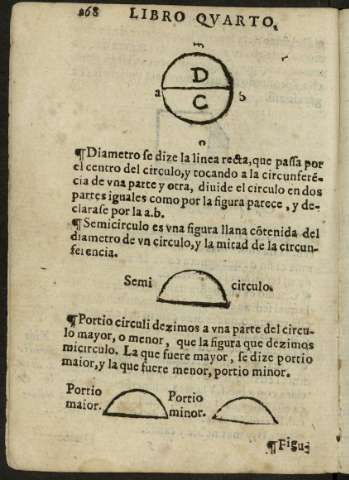 268 LIBRO QVARTO.
m
D
a b
C
n
¶Diametro se dize la linea recta, que passa por
el centro del circulo, y tocando a la circunferē-
cia de vna parte y otra, diuide el circulo en dos
partes iguales como por la figura parece, y de-
clarase por la a.b.
¶Semicirculo es vna figura llana cōtenida del
diametro de vn circulo, y la mitad de la circun-
ferencia.
Semi circulo.
¶Portio circuli dezimos a vna parte del circu-
lo mayor, o menor, que la figura que dezimos
micirculo. La que fuere mayor, se dize portio
maior, y la que fuere menor, portio minor.
Portio Portio
maior. minor.
¶Figu-